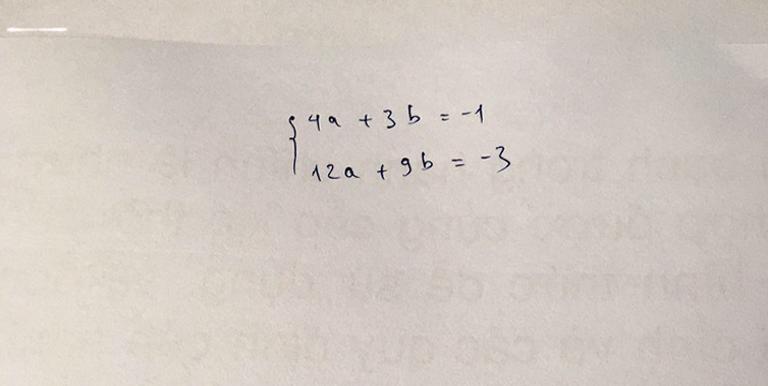 4a + 3b = -1
12a + 9b = -3